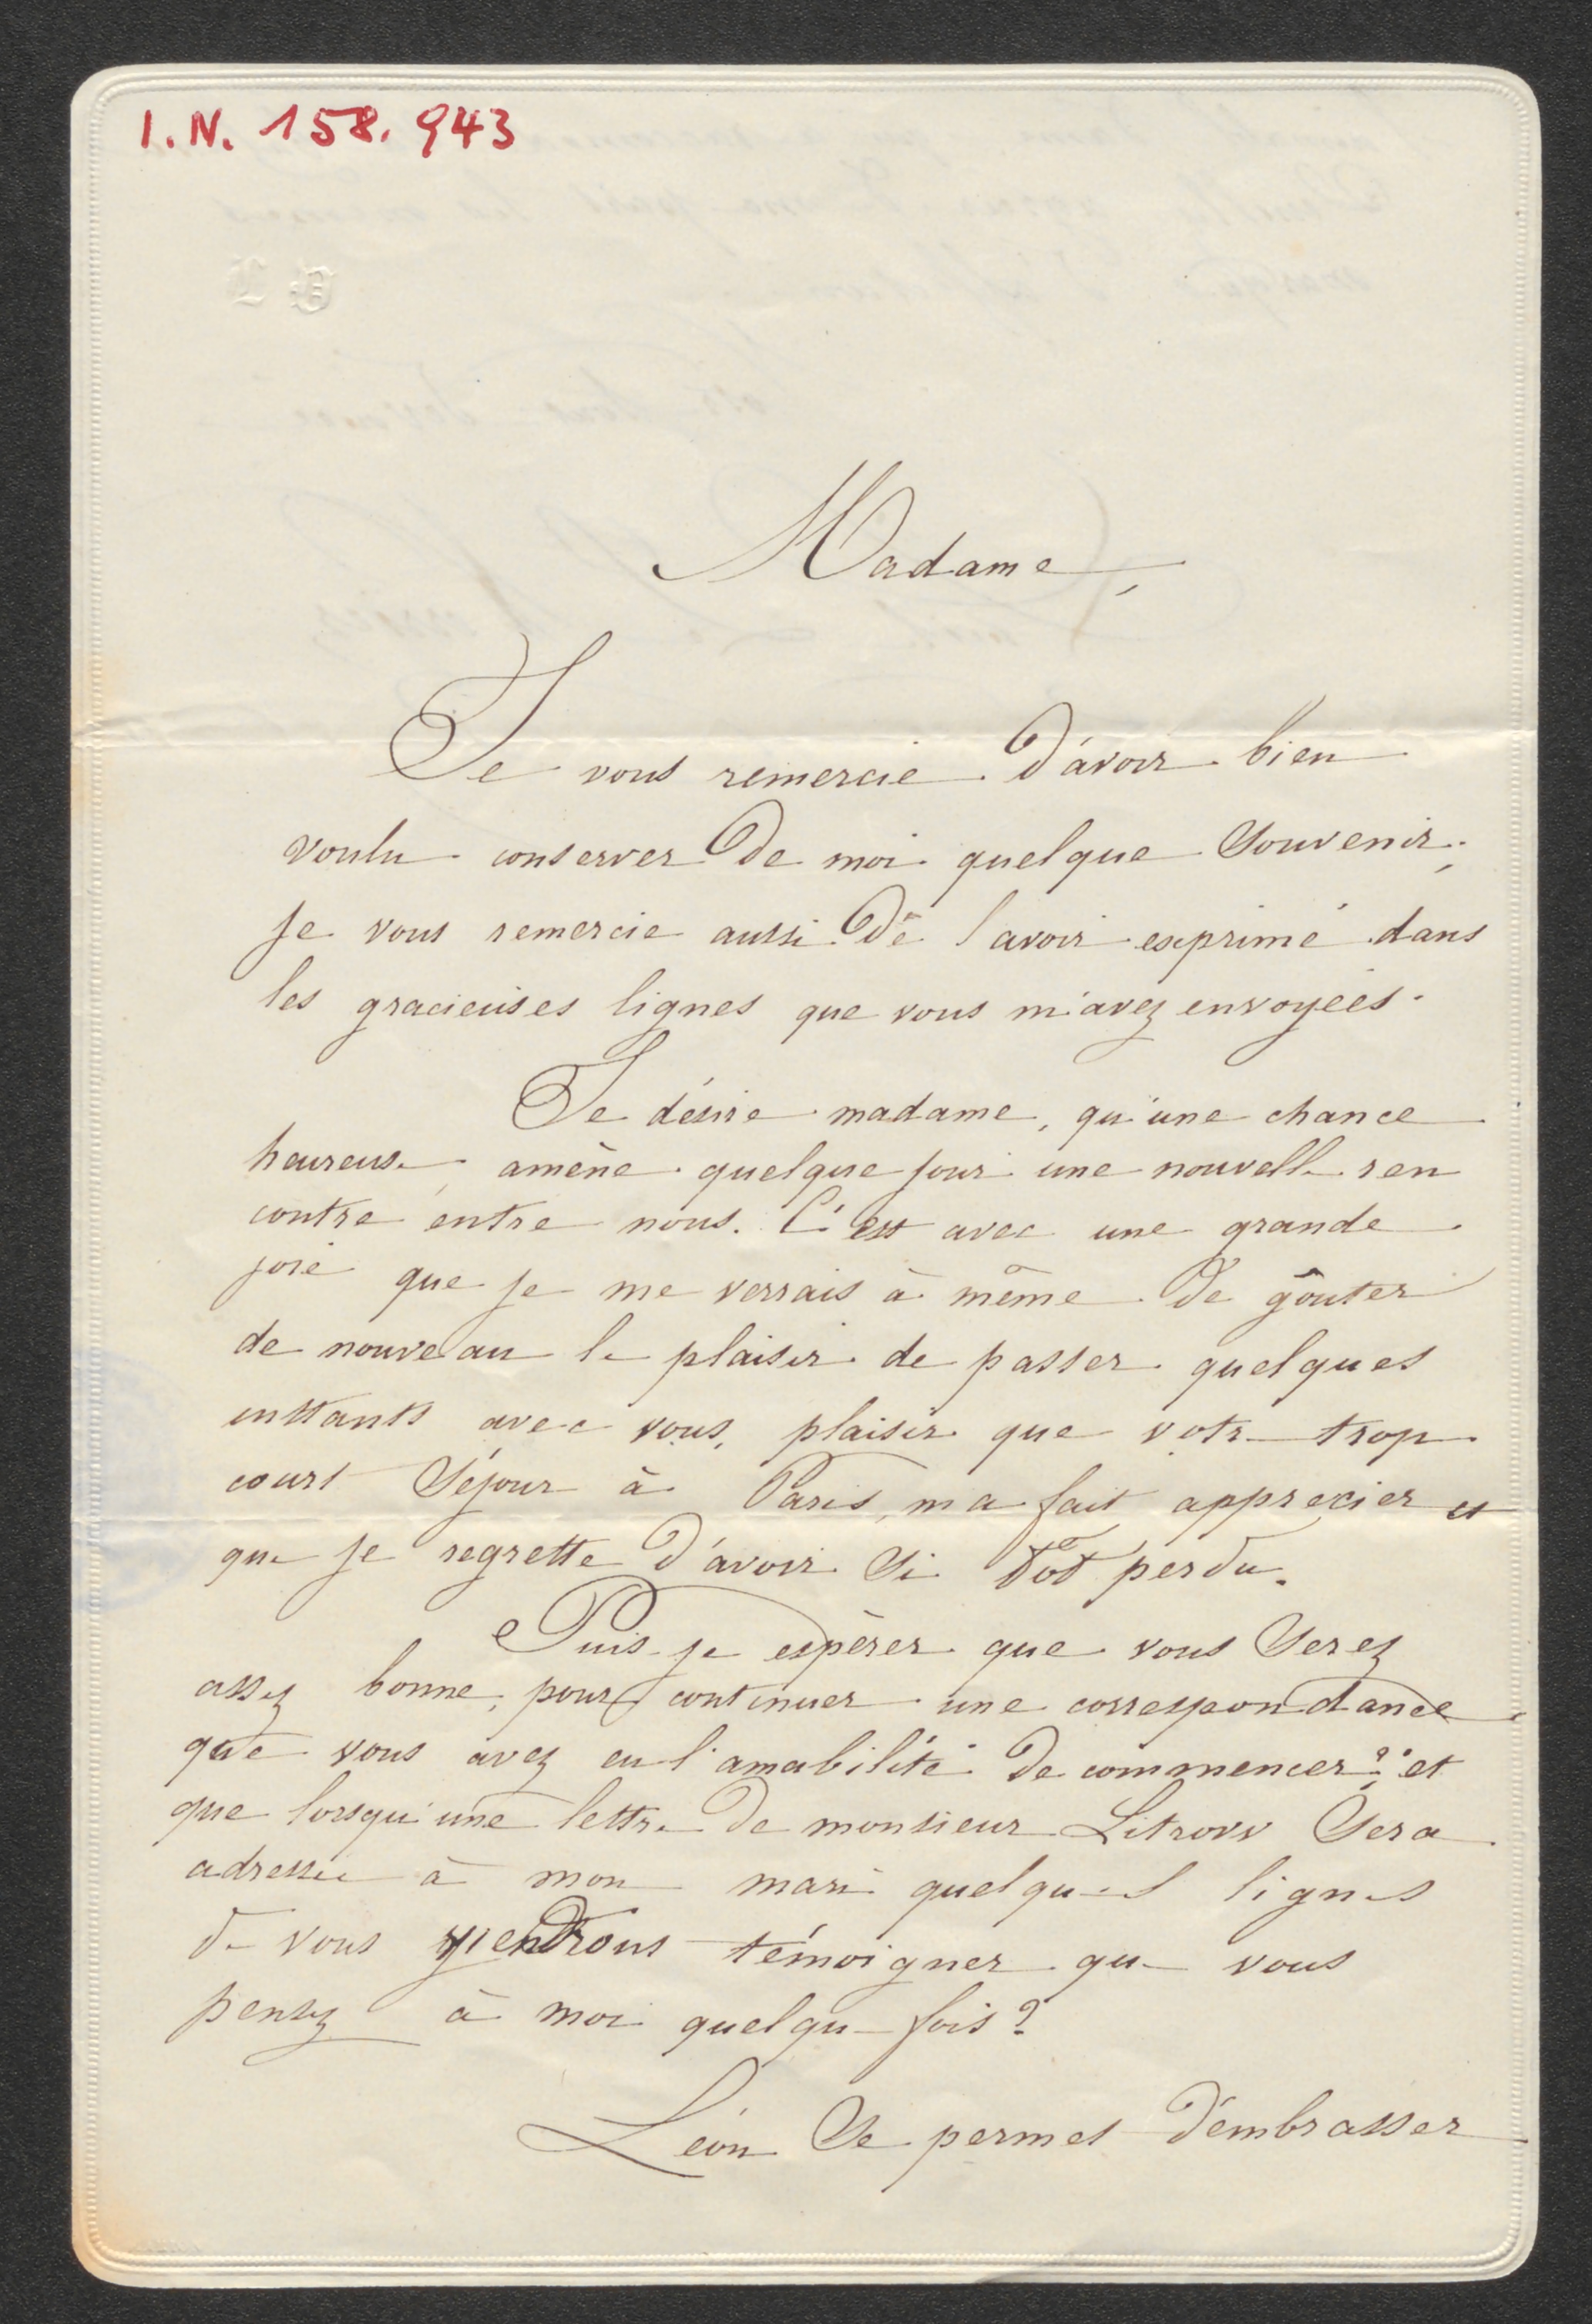 I.N. 158.943
Madame,
Je vous remercie d'avoir bien
voulu conserver de moi quelque souvenir;
je vous remercie aussi de l'avoir exprimé dans
les gracieuses lignes que vous m'avez envoyées.
Je désire madame, qu'une chance
heureuse amène quelque jour une nouvelle ren
contre entre nous. C'est avec une grande
joie que je me verrais à même de goûter
de nouveau le plaisir de passer quelques
instants avec vous, plaisir que votre trop
court séjour à Paris, m'a fait apprecier et
que je regrette d'avoir si tôt perdu.
Puis-je espèrer que vous serez
assez bonne, pour continuer une correspondance
que vous avez eu l'amabilité de commencer? et
que lorsqu'une lettre de monsieur Litrow sera
adressée à mon mari quelques lignes
de vous viendrons témoigner que vous
pensez à moi quelque fois?
Léon se permet d'embrasser